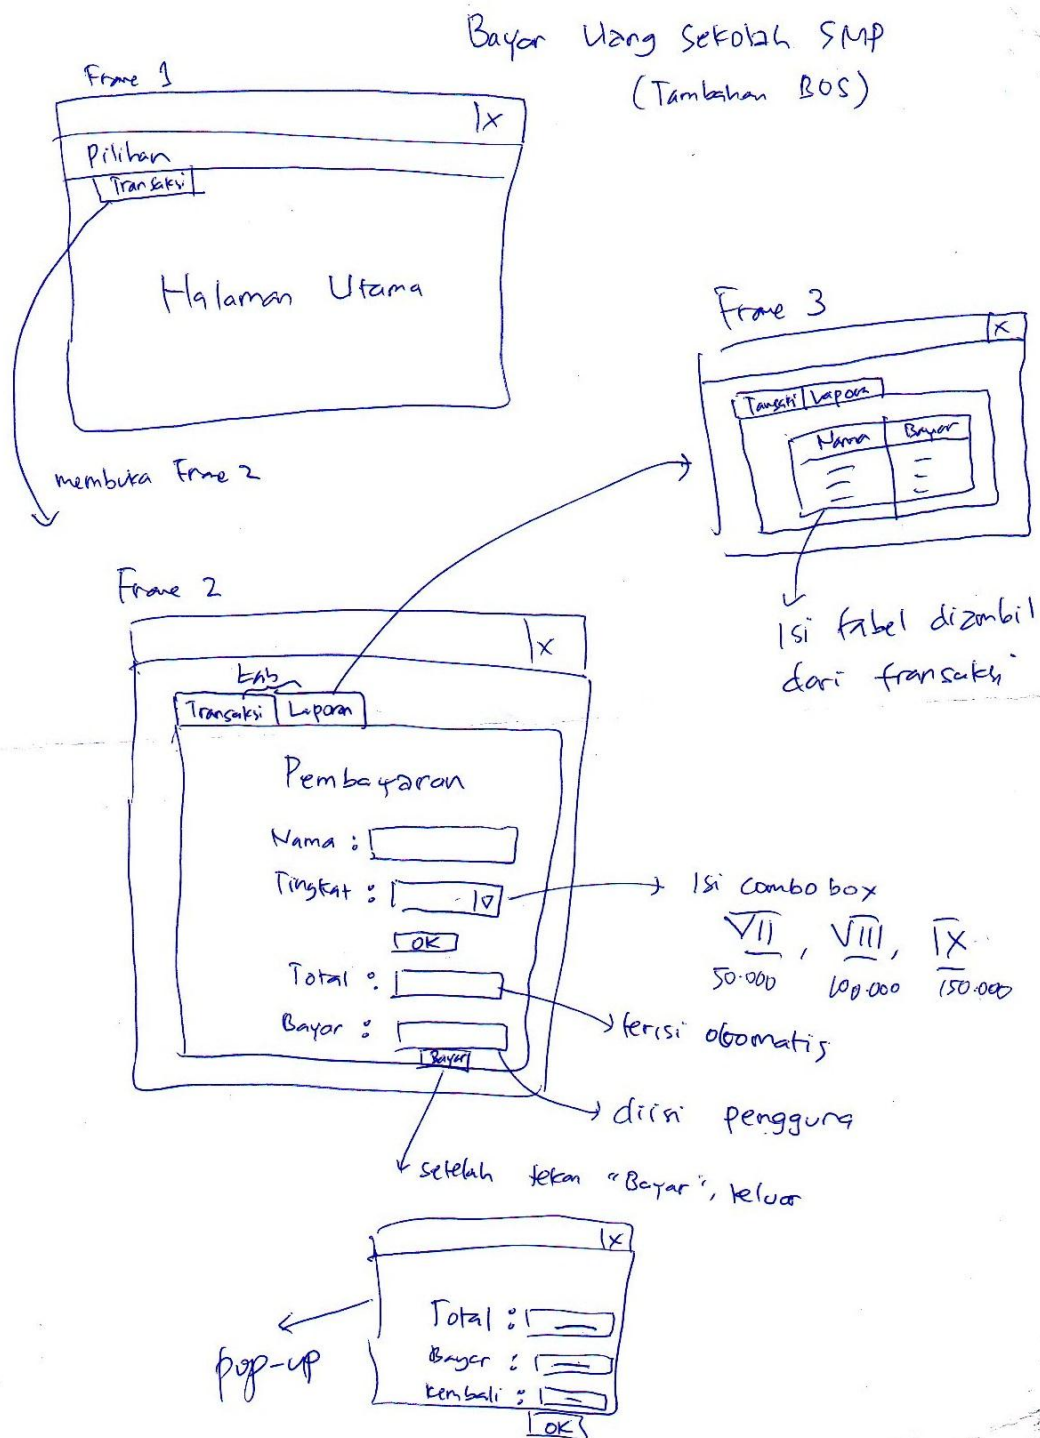 Bayar Uang Sekolah SMP
(Tambahan BOS)
Frame 1
X
Pilihan
Transaksi
Halaman Utama
membuka Frame 2
Frame 3
X
Tansaksi Laporan
Nama Bayar
Isi tabel diambil
dari transaksi
Frame 2
X
tab
Transaksi Laporan
Pembayaran
Nama :
Tingkat :
OK
Total :
Bayar :
Bayar
Isi combo box
VII, VIII, IX
50.000 100.000 150.000
terisi otomatis
diisi pengguna
setelah tekan "Bayar", keluar
X
Total :
Bayar :
Kembali :
OK
pop-up